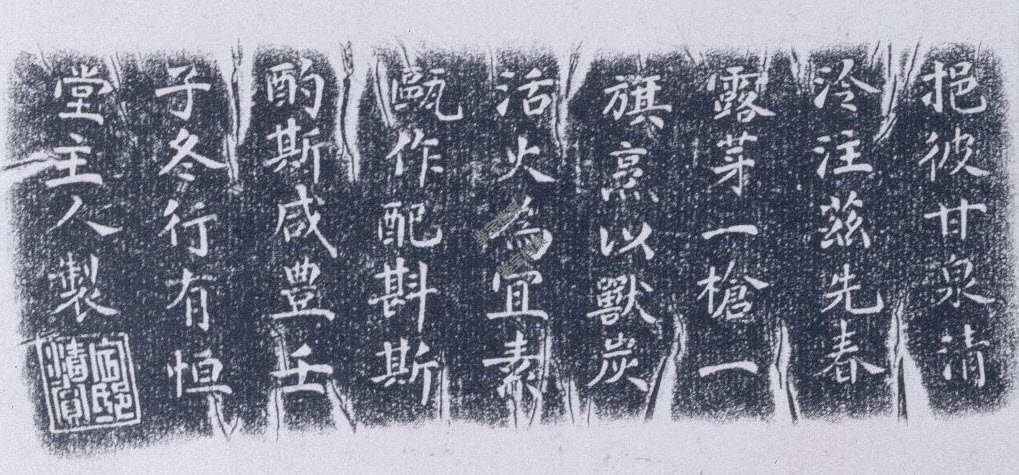 挹彼甘泉清
泠注茲先春
露芽一槍一
旗烹以獸炭
活火為宜素
甌作配斟斯
酌斯咸豊壬
子冬行有恒
堂主人製
定邸清賞